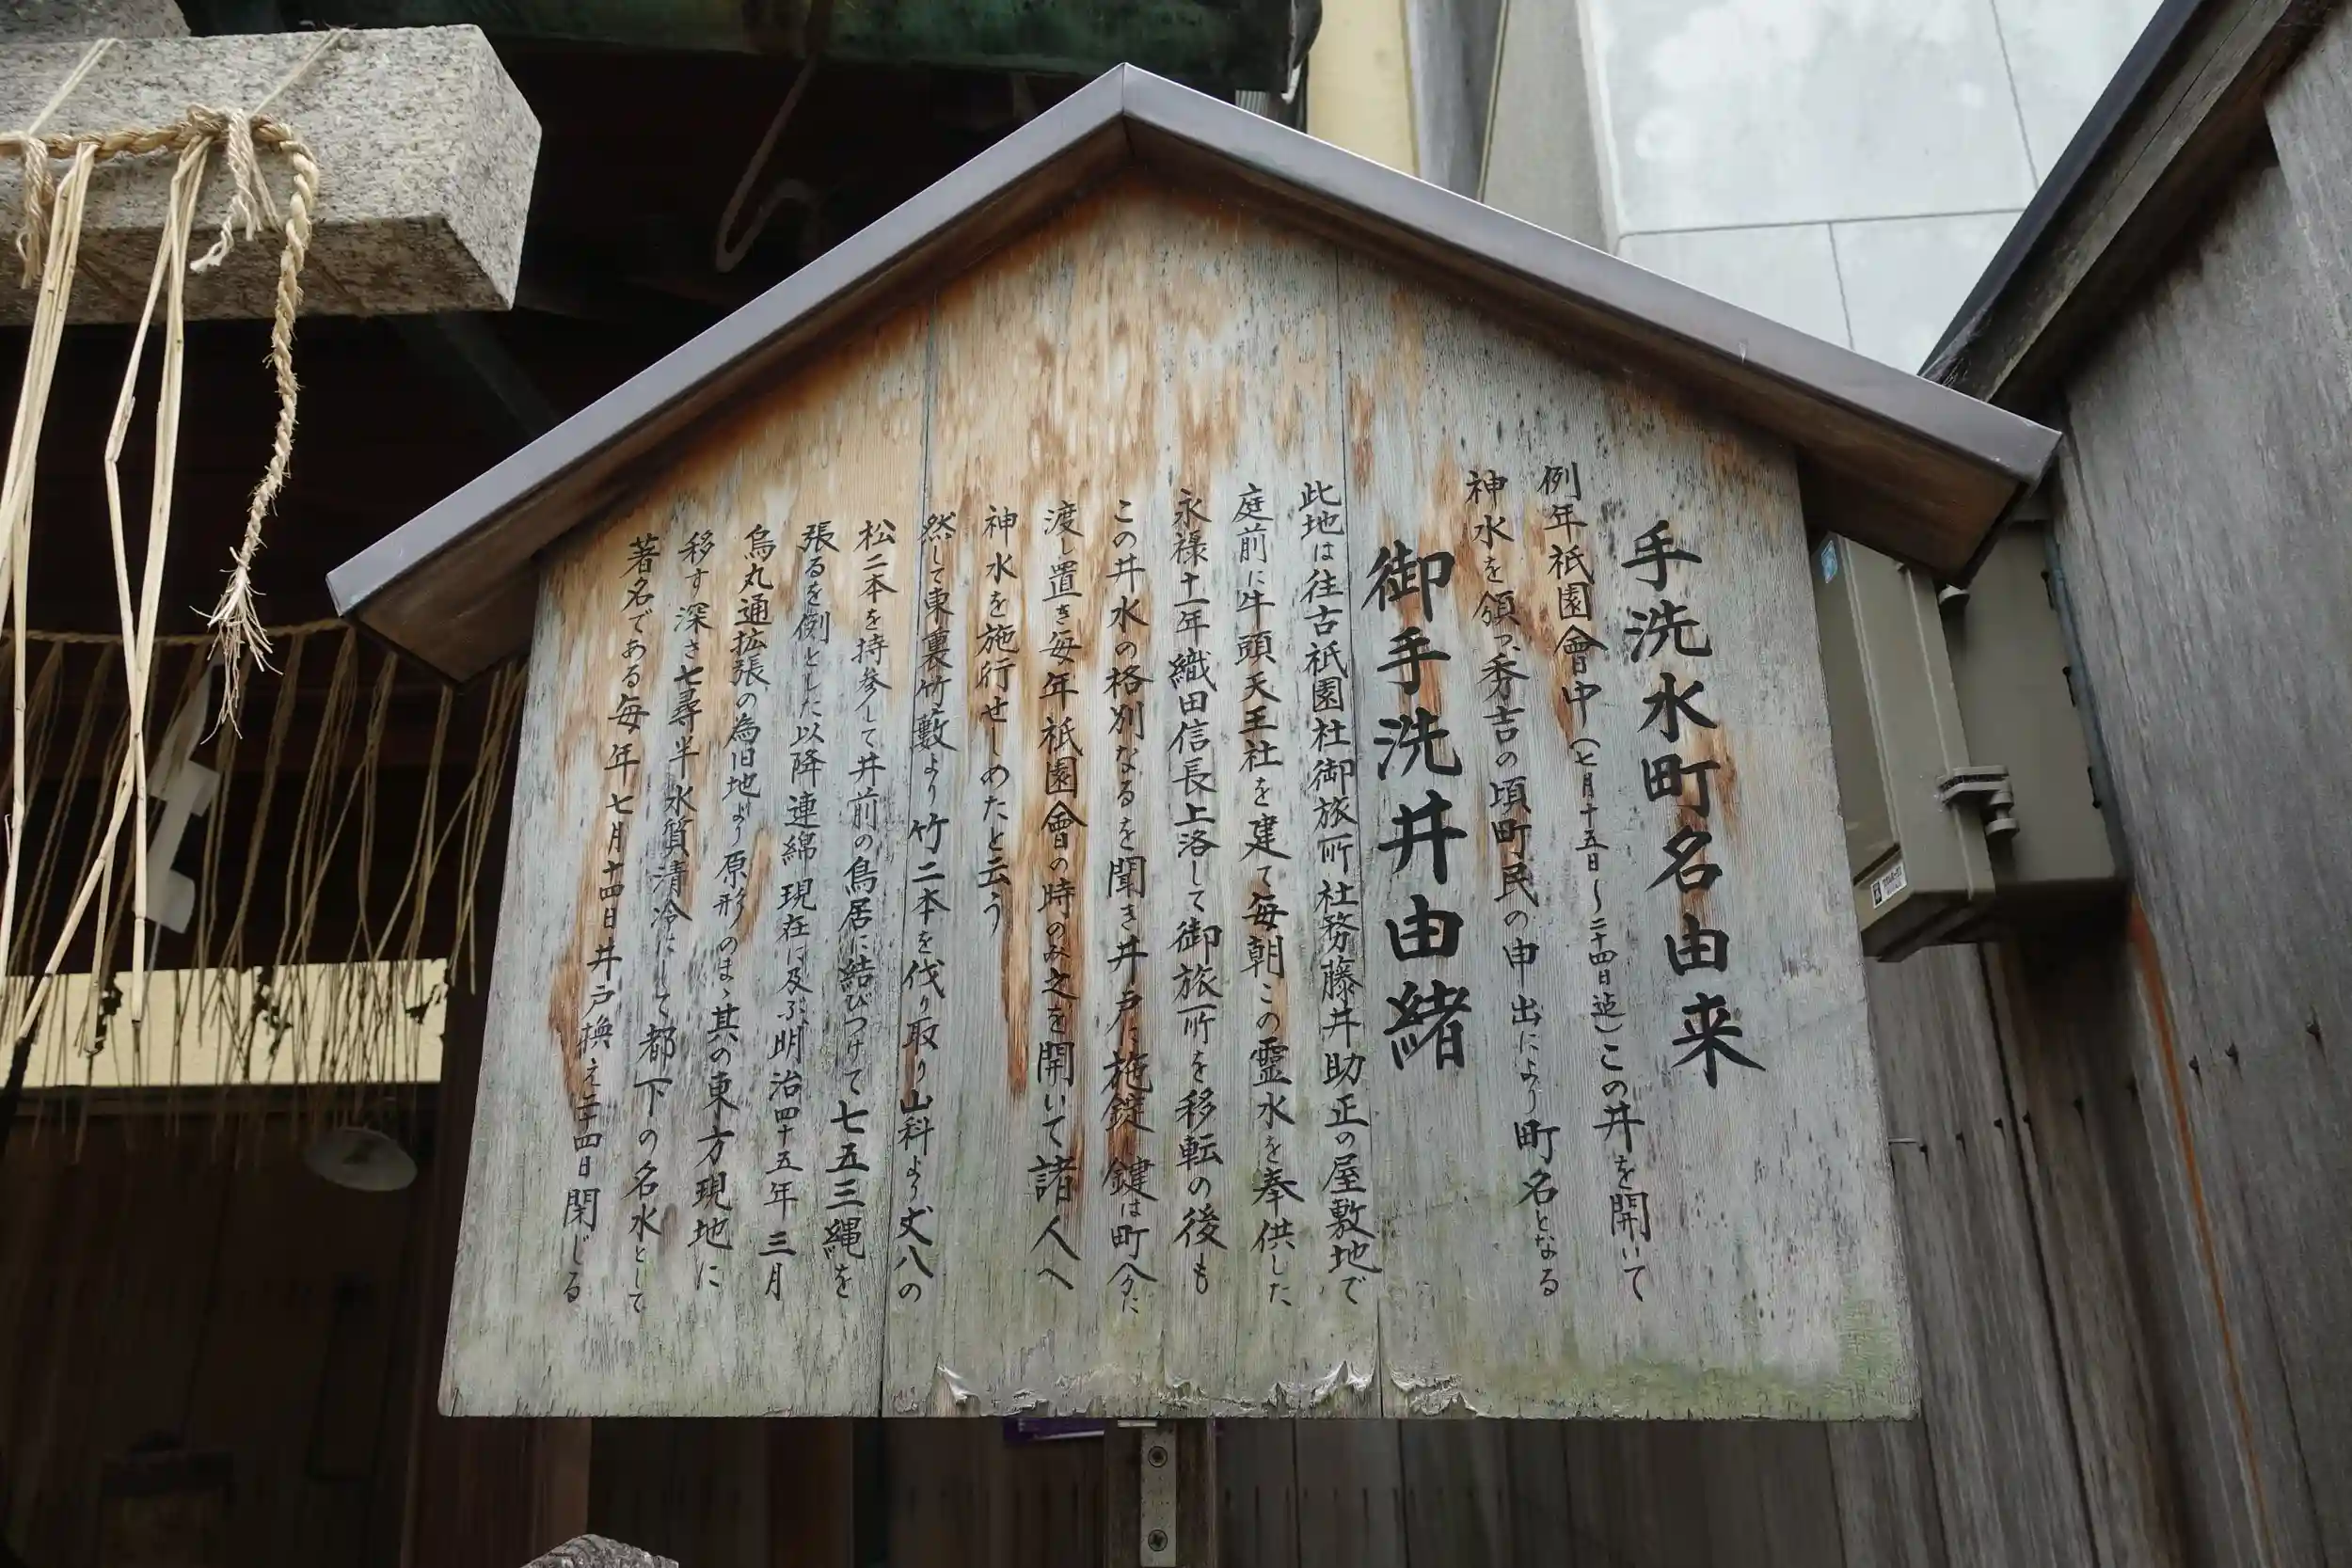 手洗水町名由来
例年祇園會中(七月十五日〜二十四日迠)この井を開いて
神水を領つ、秀吉の頃町民の申出により町名となる
御手洗井由緒
此地は往古祇園社御旅所社務藤井助正の屋敷地で
庭前に牛頭天王社を建て毎朝この霊水を奉供した
永禄十一年織田信長上洛して御旅所を移転の後も
この井水の格別なるを聞き井戸に施錠鍵は町分に
渡し置き毎年祇園會の時のみ之を開いて諸人へ
神水を施行せしめたと云う
然して東裏竹藪より竹二本を伐り取り山科より丈八の
松二本を持参して井前の鳥居に結びつけて七五三縄を
張るを例とした以降連綿現在に及ぶ明治四十五年三月
烏丸通拡張の為旧地より原形のまゝ其の東方現地に
移す深さ七尋半水質清冷にして都下の名水として
著名である毎年七月十四日井戸換え二十四日閉じる